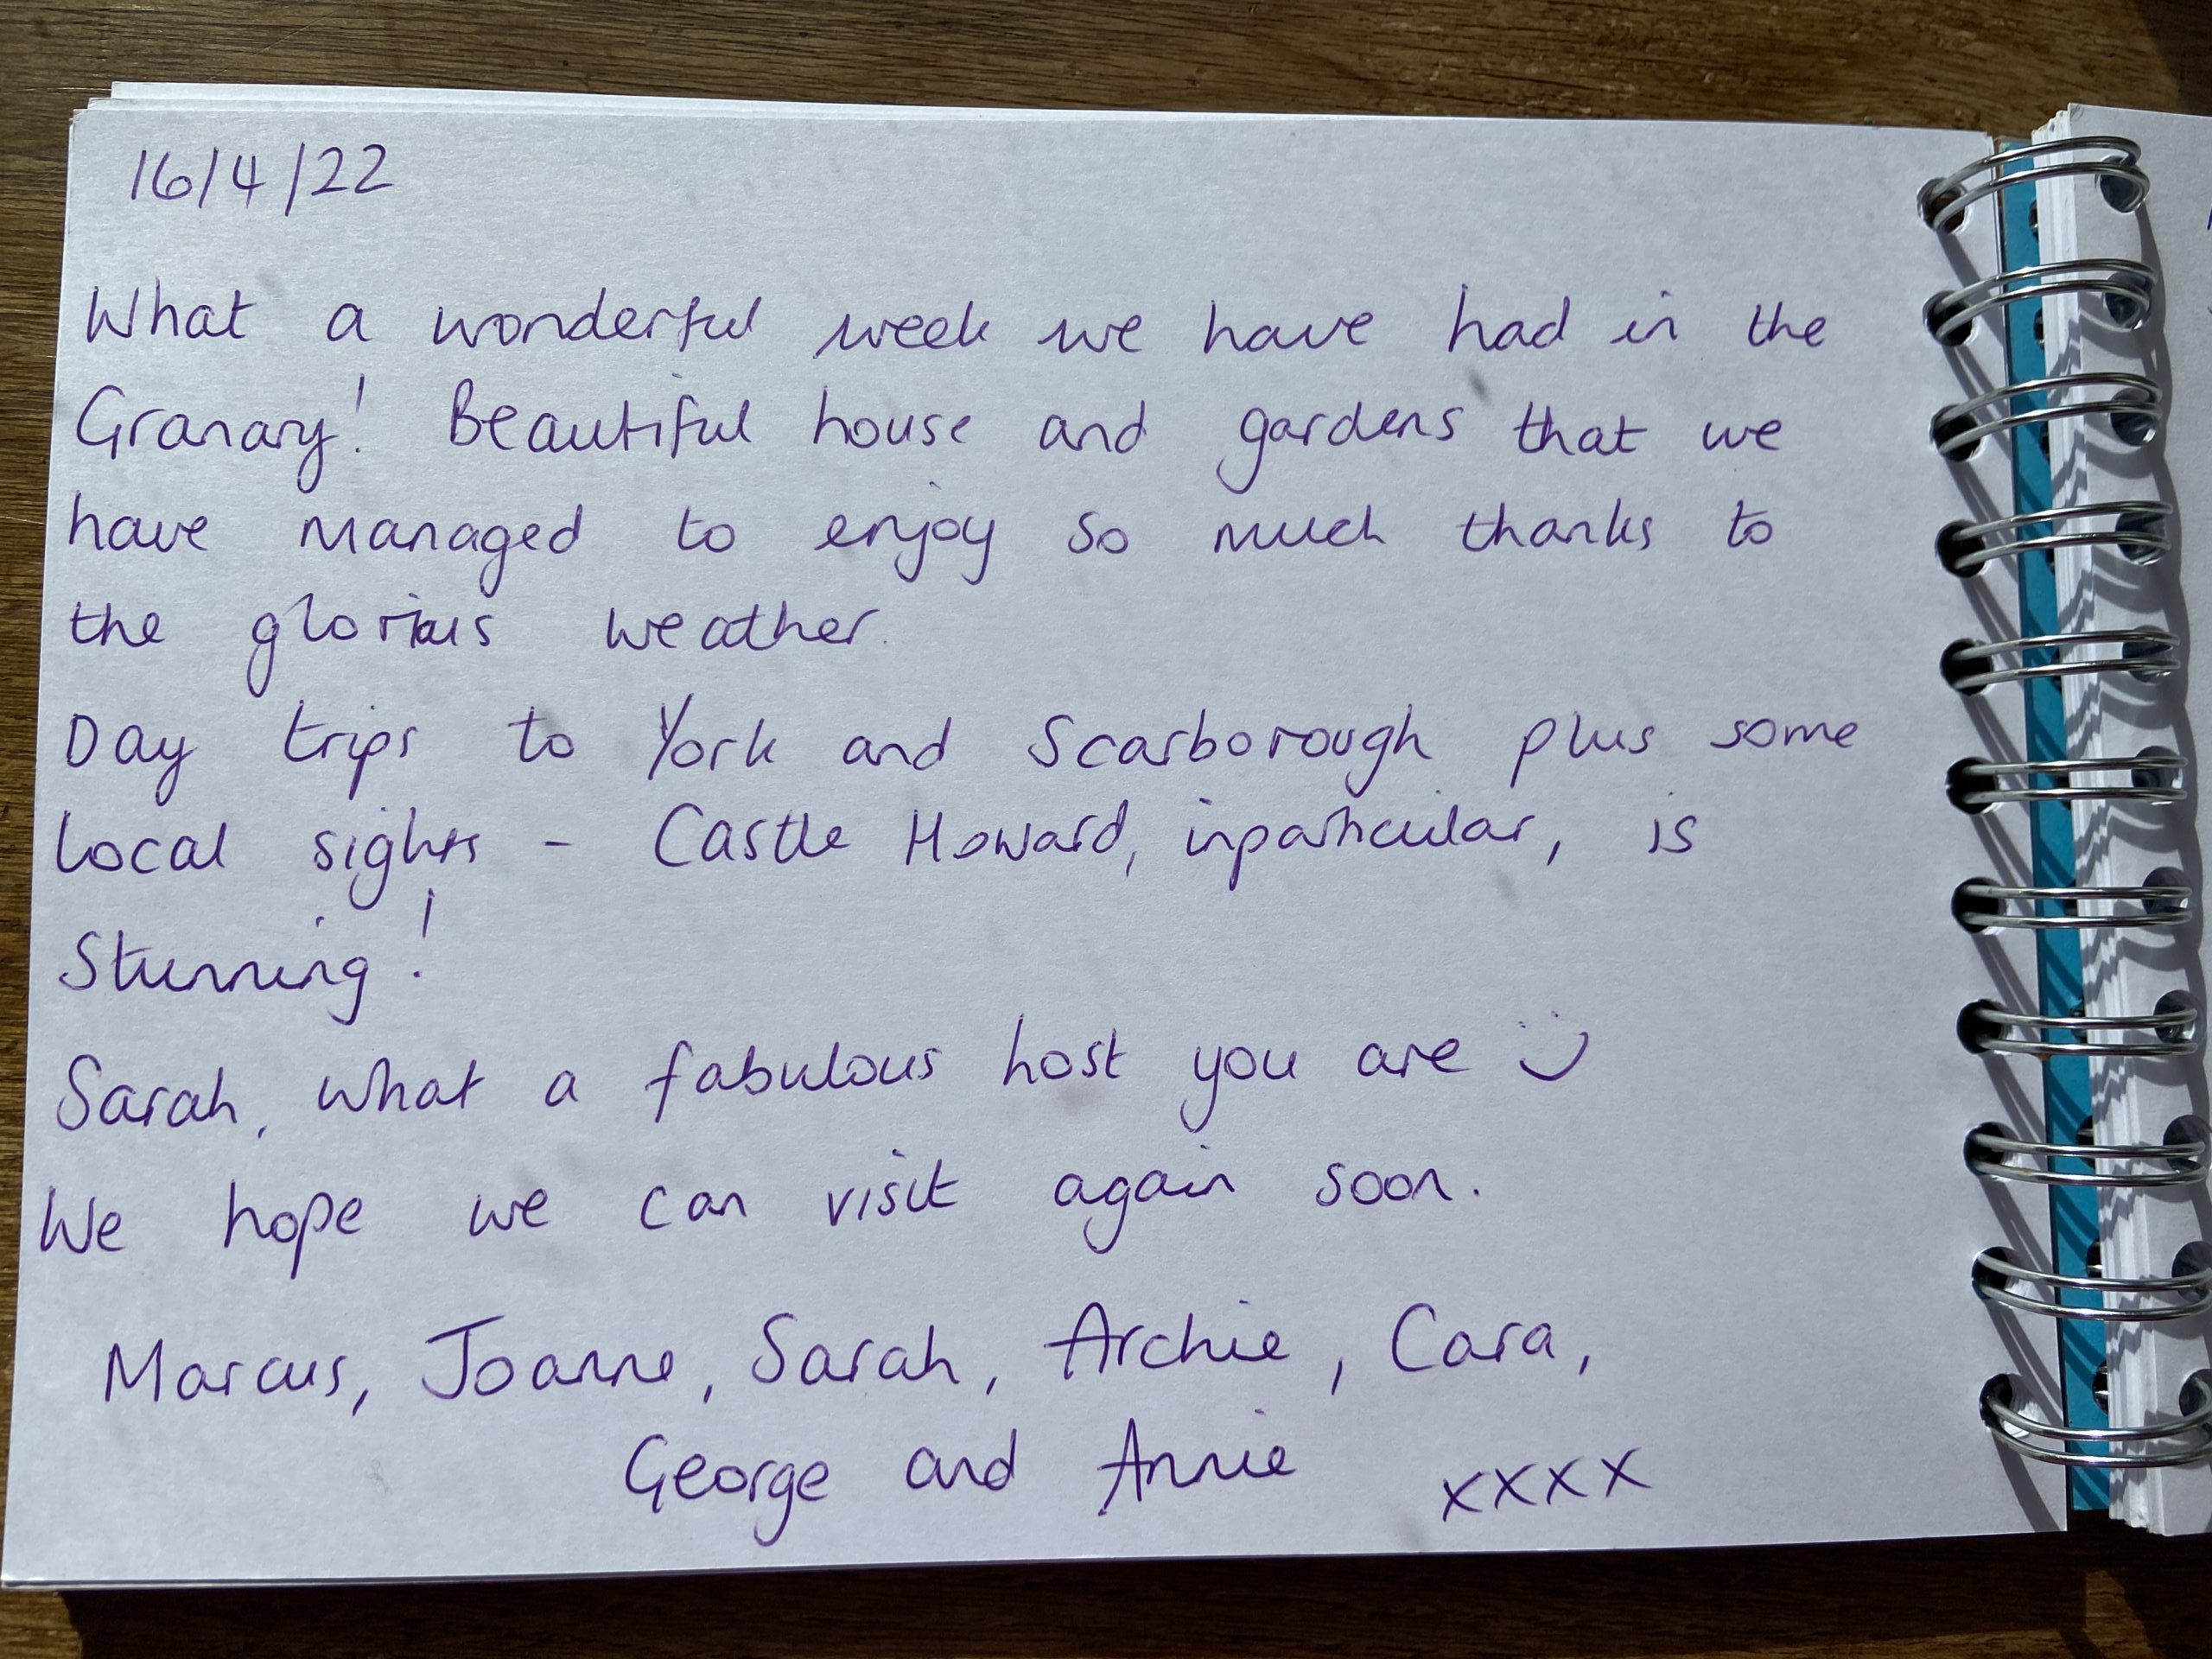 16/4/22
What a wonderful week we have had in the
Granary! Beautiful house and gardens that we
have managed to enjoy so much thanks to
the glorious weather.
Day trips to York and Scarborough plus some
local sights - Castle Howard, inparticular, is
Stunning!
Sarah, what a fabulous host you are :)
We hope we can visit again soon.
Marcus, Joanne, Sarah, Archie, Cara,
George and Annie xxxx